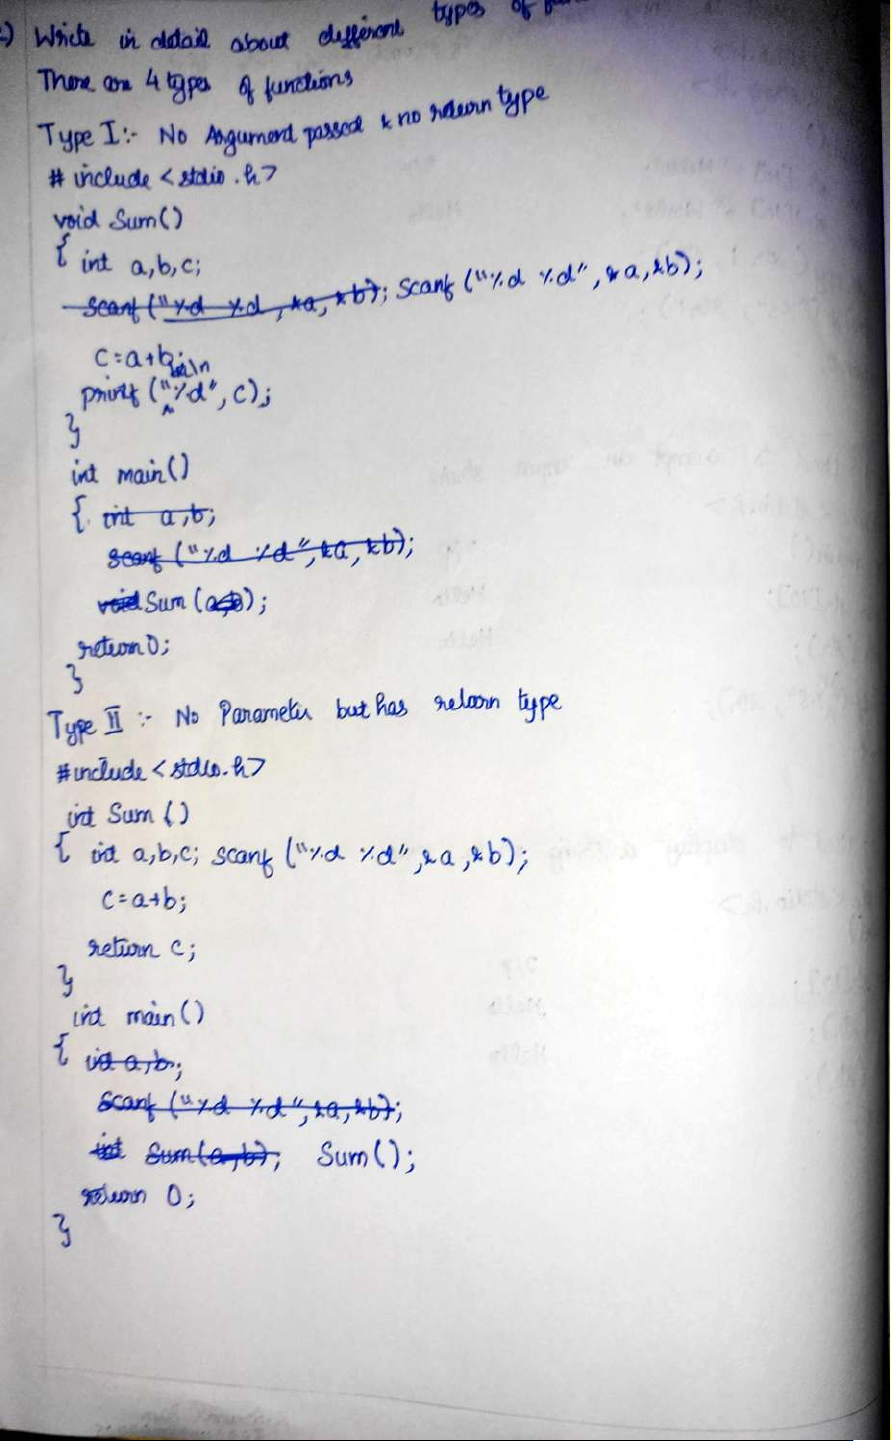 Write in detail about different types of
There are 4 types of functions
Type I:- No Argument passed & no return type
# include <stdio.h>
void Sum()
{ int a,b,c;
scanf ("%d %d, &a, &b); Scanf ("%d %d", &a, &b);
c=a+b;
printf ("%d", c);
}
int main()
{ int a,b;
scanf ("%d %d", &a, &b);
void Sum (a,b);
return 0;
}
Type II :- No Parameter but has return type
#include <stdio.h>
int Sum ()
{ int a,b,c; scanf ("%d %d", &a, &b);
c=a+b;
return c;
}
int main()
{ int a,b;
Scanf ("%d %d", &a, &b);
int Sum(a,b); Sum();
return 0;
}